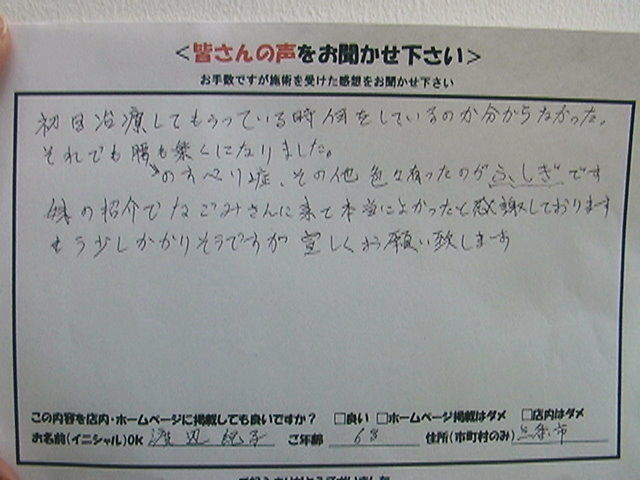 ＜皆さんの声をお聞かせ下さい＞
お手数ですが施術を受けた感想をお聞かせ下さい
初回治療してもらっている時何をしているのか分からなかった。
それでも腰も楽くになりました。
のすべり症、その他色々有ったのがふしぎです
妹の紹介でなごみさんに来て本当によかったと感謝しております
もう少しかかりそうですが宜しくお願い致します
この内容を店内・ホームページに掲載しても良いですか？ □良い □ホームページ掲載はダメ □店内はダメ
お名前(イニシャル)OK 渡辺紀子 ご年齢 68 住所(市町村のみ) 三条市